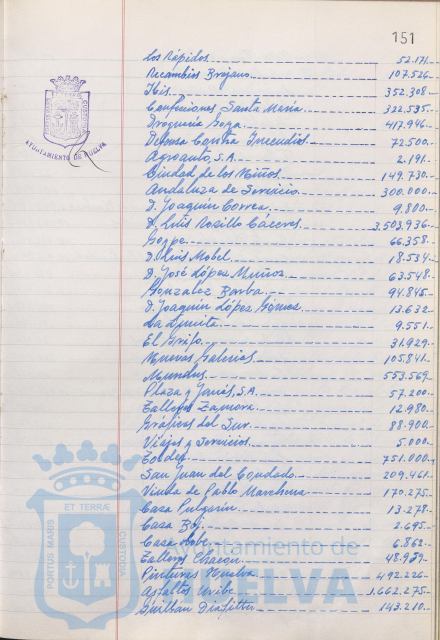 151
Los Rápidos 52.171.-
Recambios Brajano 107.526.-
Ibis 352.308.-
Confecciones Santa María 322.535.-
Droguería Goza 417.946.-
Defensa Contra Incendios 72.500.-
Agroauto, S.A. 2.191.-
Ciudad de los Niños 149.730.-
Andaluza de Servicio 300.000.-
D. Joaquin Correa 9.800.-
D. Luis Rosillo Cáceres 3.503.936.-
66.358.-
D. Luis Mobel 18.534.-
D. José López Muñoz 63.548.-
Gonzalez Barba 94.845.-
D. Joaquin López Gómez 13.632.-
La 9.551.-
El Grifo 31.929.-
Nuevas Galerias 105.841.-
Mundus 553.569.-
Plaza y Janés, S.A. 57.200.-
Talleres Zamora 12.980.-
Gráficas del Sur 88.900.-
Viajes y Servicios 5.000.-
751.000.-
San Juan del Condado 209.461.-
Viuda de Pablo Marchena 170.275.-
Casa Pulgarin 13.278.-
Casa 2.695.-
Casa 6.862.-
Talleres Chacon
Pinturas Huelva 492.226.-
Asfaltos Uribe 1.662.275.-
143.210.-
AYUNTAMIENTO DE HUELVA
PORTUS MARIS ET TERRÆ CUSTODIA
Ayuntamiento de
HUELVA